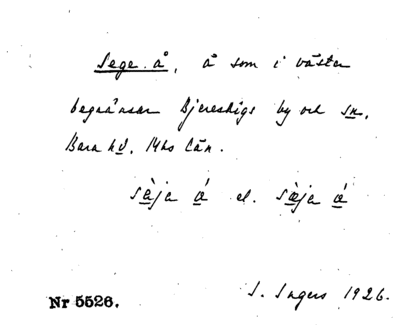 Sege å, å som i väster
begränsar Bjereshögs by och sn,
Bara hd, Mhs län.
sàja á el. sæ̀ja á
I. Ingers 1926.
Nr 5526.